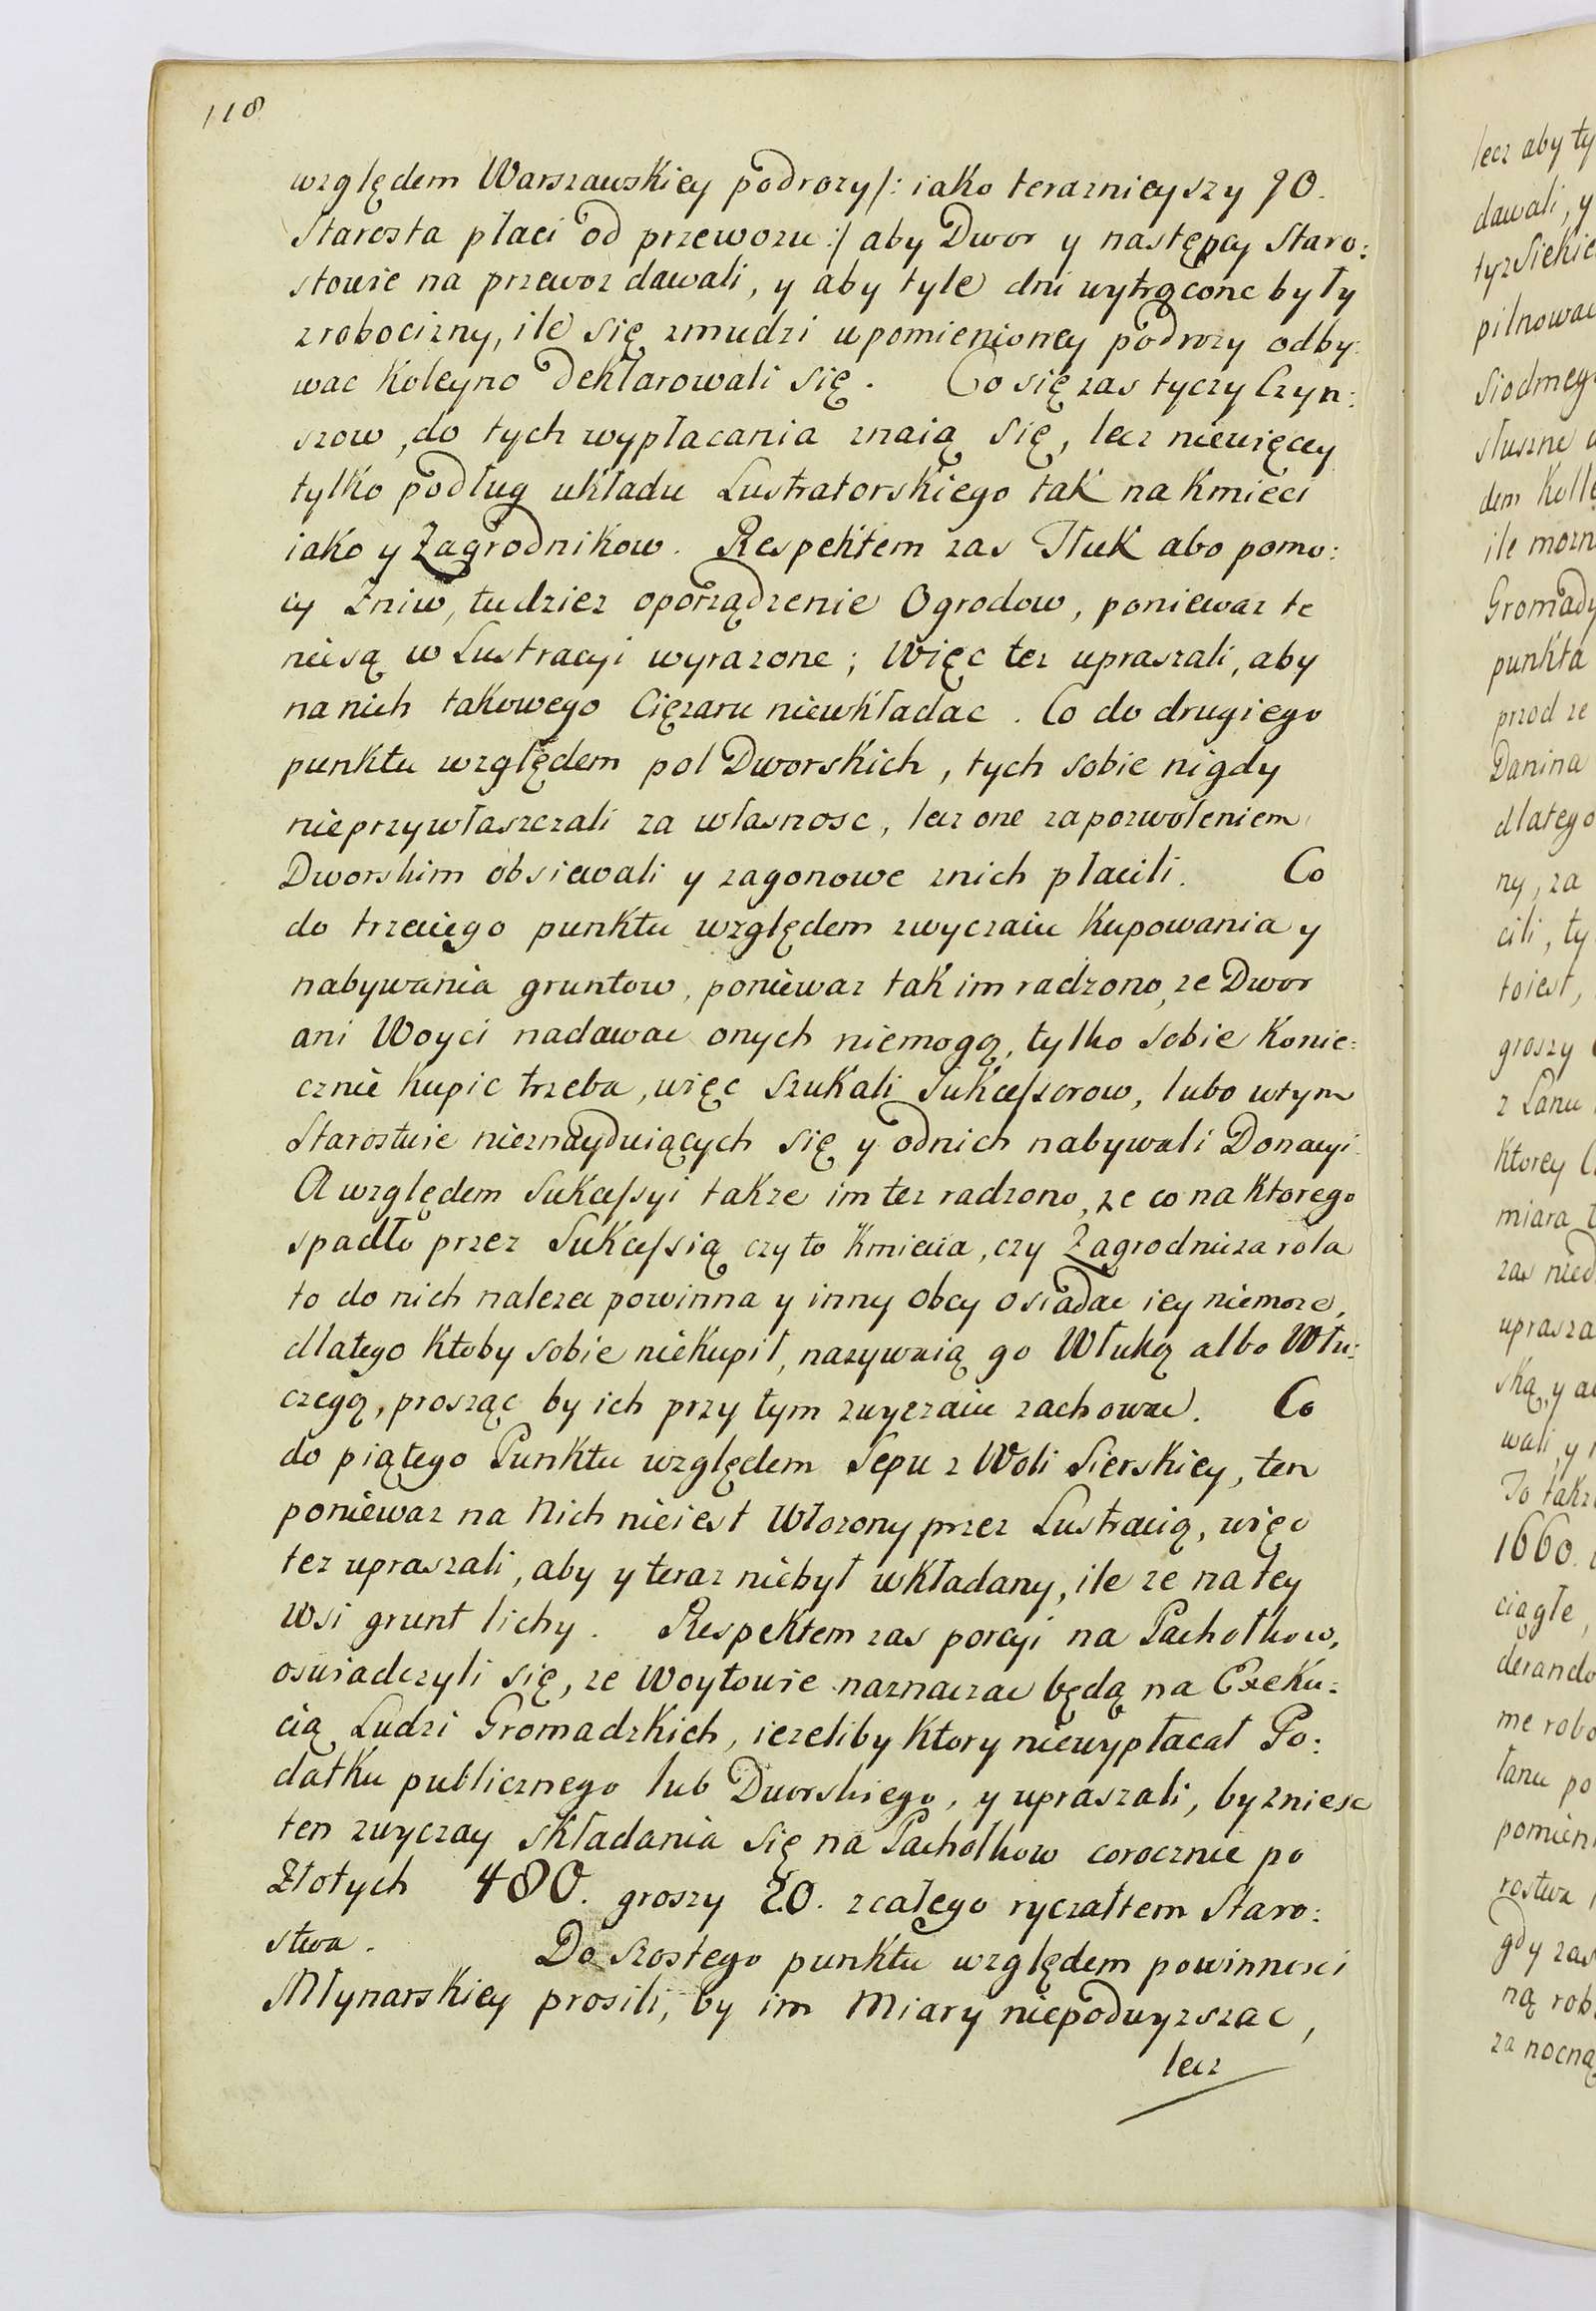 118
względem Warszawskiey podrozy /: iako teraznieyszy JO.
Starosta płaci od przewozu :/ aby Dwor y następcy Staro:
stowie na przewoz dawali, y aby tyle dni wytrącone były
z robocizny, ile się zmudzi w pomienioney podrozy odby:
wac koleyno deklarowali się. Co się zas tyczy Czyn:
szow, do tych wypłacania znaią się, lecz niewięcey
tylko podług układu Lustratorskiego tak na Kmieci
iako y Zagrodnikow. Respektem zas Tłuk abo pomo:
cy Zniw, tudziez oporządzenie Ogrodow, poniewaz te
niesą w Lustracyi wyrazone; Więc tez upraszali, aby
na nich takowego Cięzaru niewkładac. Co do drugiego
punktu względem pol Dworskich, tych sobie nigdy
nieprzywłaszczali za własnosc, lecz one za pozwoleniem
Dworskim obsiewali y zagonowe znich płacili. Co
do trzeciego punktu względem zwyczaiu kupowania y
nabywania gruntow, poniewaz tak im radzono, ze Dwor
ani Woyci nadawac onych niemogą, tylko sobie konie:
cznie kupic trzeba, więc szukali Sukcessorow, lubo wtym
Starostwie nieznayduiących się y odnich nabywali Donacyi.
A względem Sukcessyi takze im tez radzono, ze co na ktorego
spadło przez Sukcessią czy to Kmiecia, czy Zagrodnicza rola
to do nich nalezec powinna y inny obcy osiadac iey niemoze,
dlatego ktoby sobie niekupił, nazywaią go Włuką albo Włu:
czegą, prosząc by ich przy tym zwyczaiu zachowac. Co
do piątego Punktu względem Sepu z Woli Sierskiey, ten
poniewaz na Nich nieiest Włozony przez Lustracią, więc
tez upraszali, aby y teraz niebył wkładany, ile ze na tey
Wsi grunt lichy. Respektem zas porcyi na Pachołkow,
oswiadczyli się, ze Woytowie naznaczac będą na Exeku:
cią Ludzi Gromadzkich, iezeliby ktory niewypłacał Po:
datku publicznego lub Dworskiego, y upraszali, by zniesc
ten zwyczay składania się na Pachołkow corocznie po
Złotych 480. groszy 20. zcałego ryczałtem Staro:
stwa. Do szostego punktu względem powinnosci
Młynarskiey prosili, by im Miary niepodwyzszac,
lecz
lecz aby ty
dawali, y
pilnowac
Siodmeg
słuszne
ile mozn
Gromady
punkta
przod ze
Danina
dlatego
ny, za
cili, ty
toiest,
groszy
z Łanu
ktorey
miara
zas nied
uprasza
ską, y
wali, y
To takz
1660.
ciągłe,
derando
me robo
łanu po
pomieni
rostwa
gdy zas
ną rob
za nocną